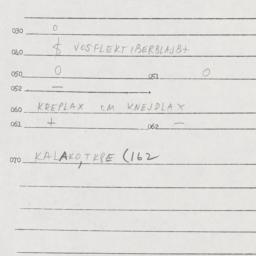 030 0
040 $ VOSFLEKT IBERBLAJBT
050 0 051 0
052 —
060 KREPLAX CM KNEJDLAX
061 + 062 —
070 KALAKOTKPE (162